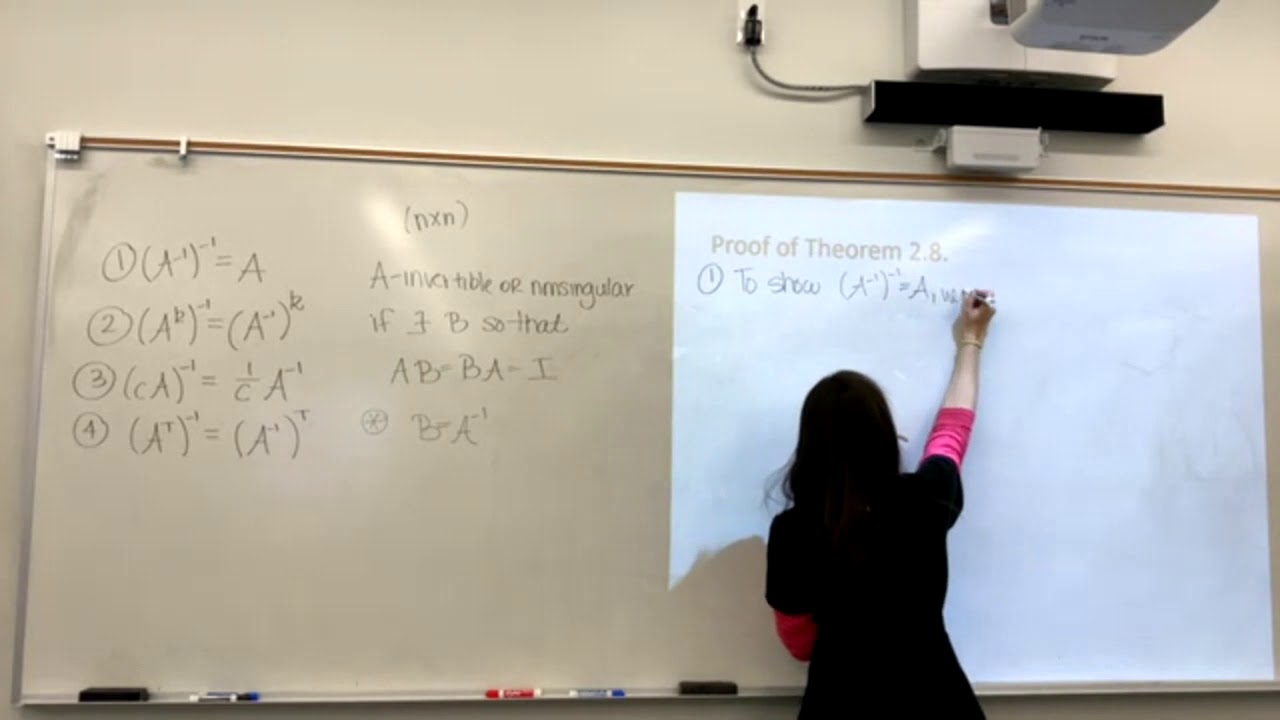 ① (A⁻¹)⁻¹ = A
② (Aᵏ)⁻¹ = (A⁻¹)ᵏ
③ (cA)⁻¹ = 1/c A⁻¹
④ (Aᵀ)⁻¹ = (A⁻¹)ᵀ
(n×n)
A-invertible or nonsingular
if ∃ B so that
AB = BA = I
⊛ B = A⁻¹
Proof of Theorem 2.8.
① To show (A⁻¹)⁻¹ = A,